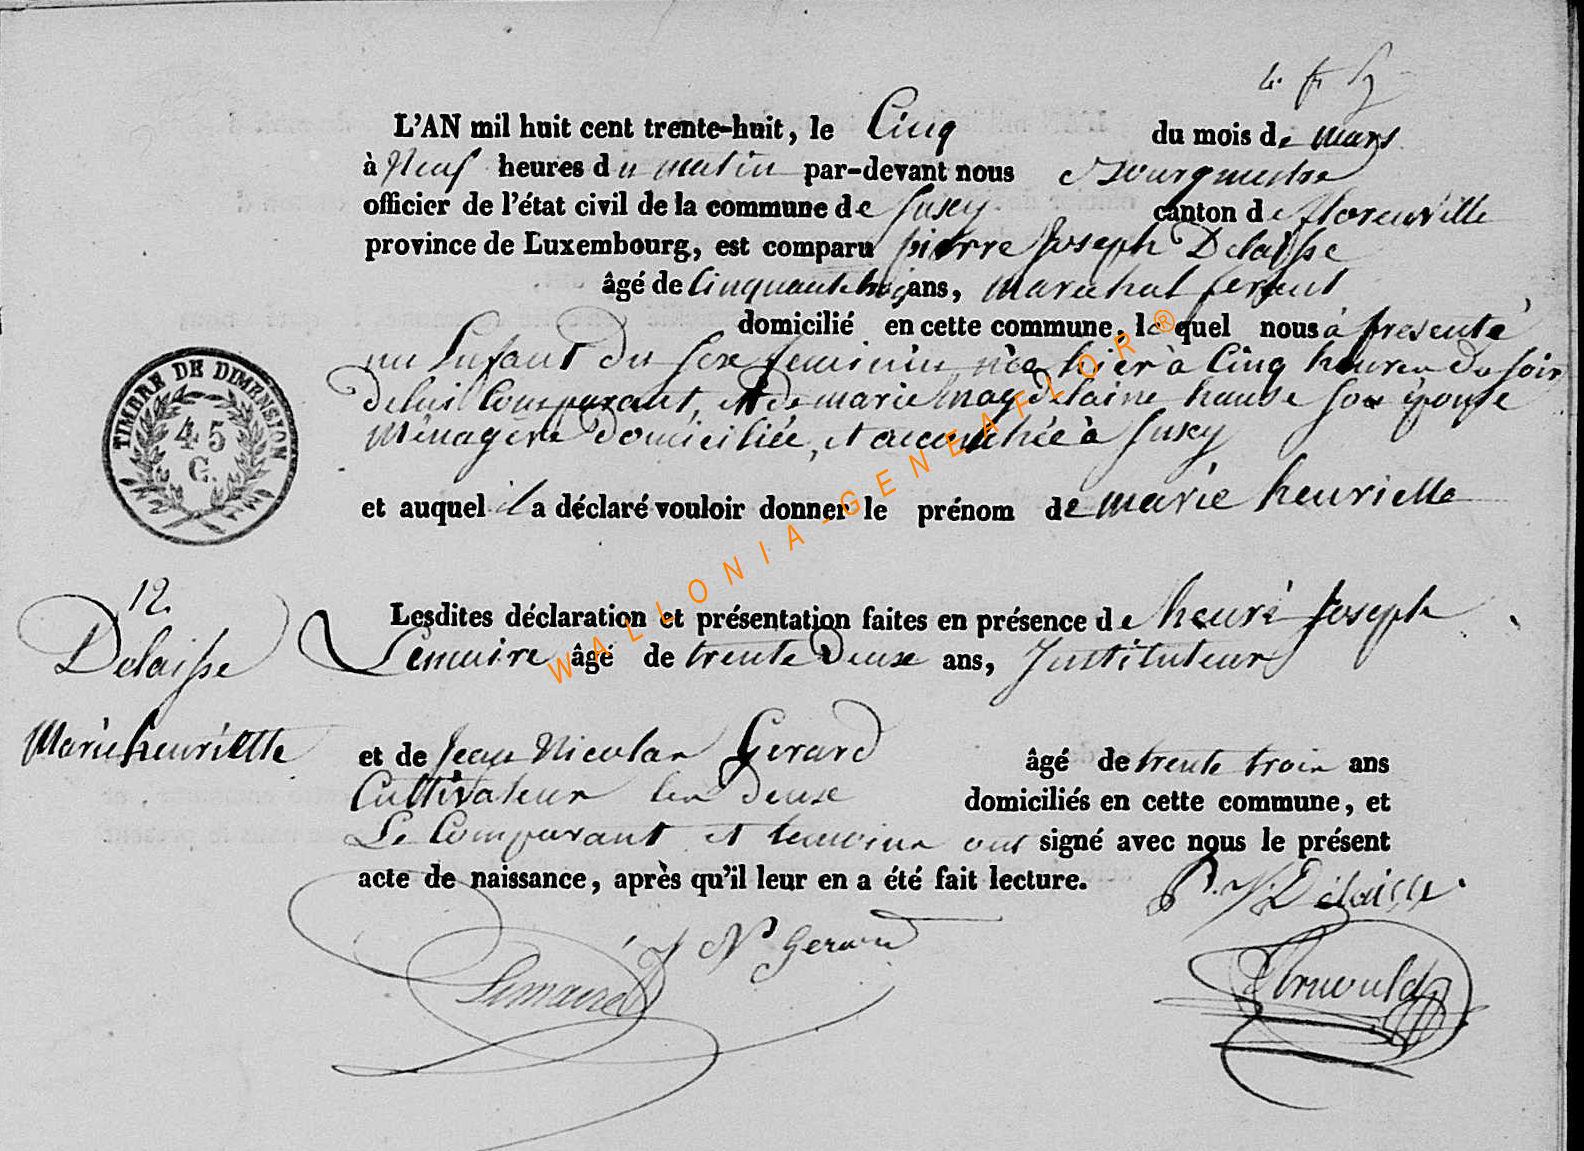 L'AN mil huit cent trente-huit, le Cinq du mois de mars
à Neuf heures du matin par-devant nous Bourgmestre
officier de l'état civil de la commune de Suxy canton de florenville
province de Luxembourg, est comparu pierre Joseph Delaisse
âgé de Cinquante ans, marechal ferant
domicilié en cette commune, lequel nous à presenté
un Enfant du sexe feminin née hier à Cinq heures du soir
de lui Comparant, et de marie magdelaine son épouse
Ménagere domiciliée, et accouchée à Suxy
et auquel il a déclaré vouloir donner le prénom de marie henriette
TIMBRE DE DIMENSION
45
C.
12.
Delaisse
Marie henriette
Lesdites déclaration et présentation faites en présence de henri Joseph
Lemaire âgé de trente deux ans, Instituteur
et de Jean Nicolas Gerard âgé de trente trois ans
Cultivateur les deux domiciliés en cette commune, et
Le Comparant et temoins ont signé avec nous le présent
acte de naissance, après qu'il leur en a été fait lecture.
P. J. Delaisse.
J N Gerard
Lemaire
WALLONIA-GENEAFLOR®